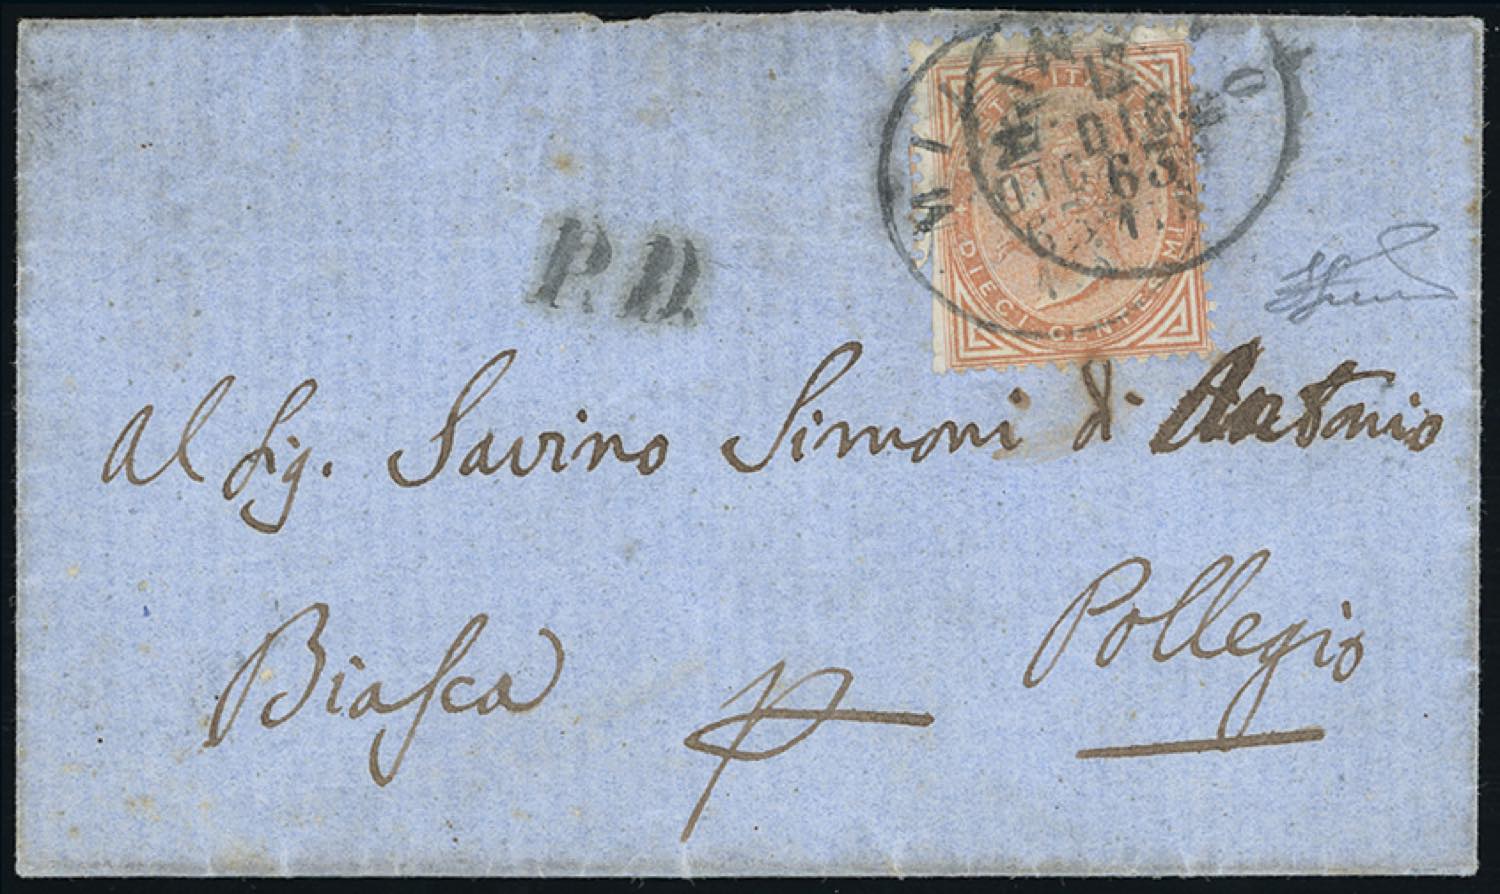 MILANO
DIC
63
DIECI CENTESIMI
P.D.
Al Sig. Savino Simoni d' Antonio
Biasca p Pollegio